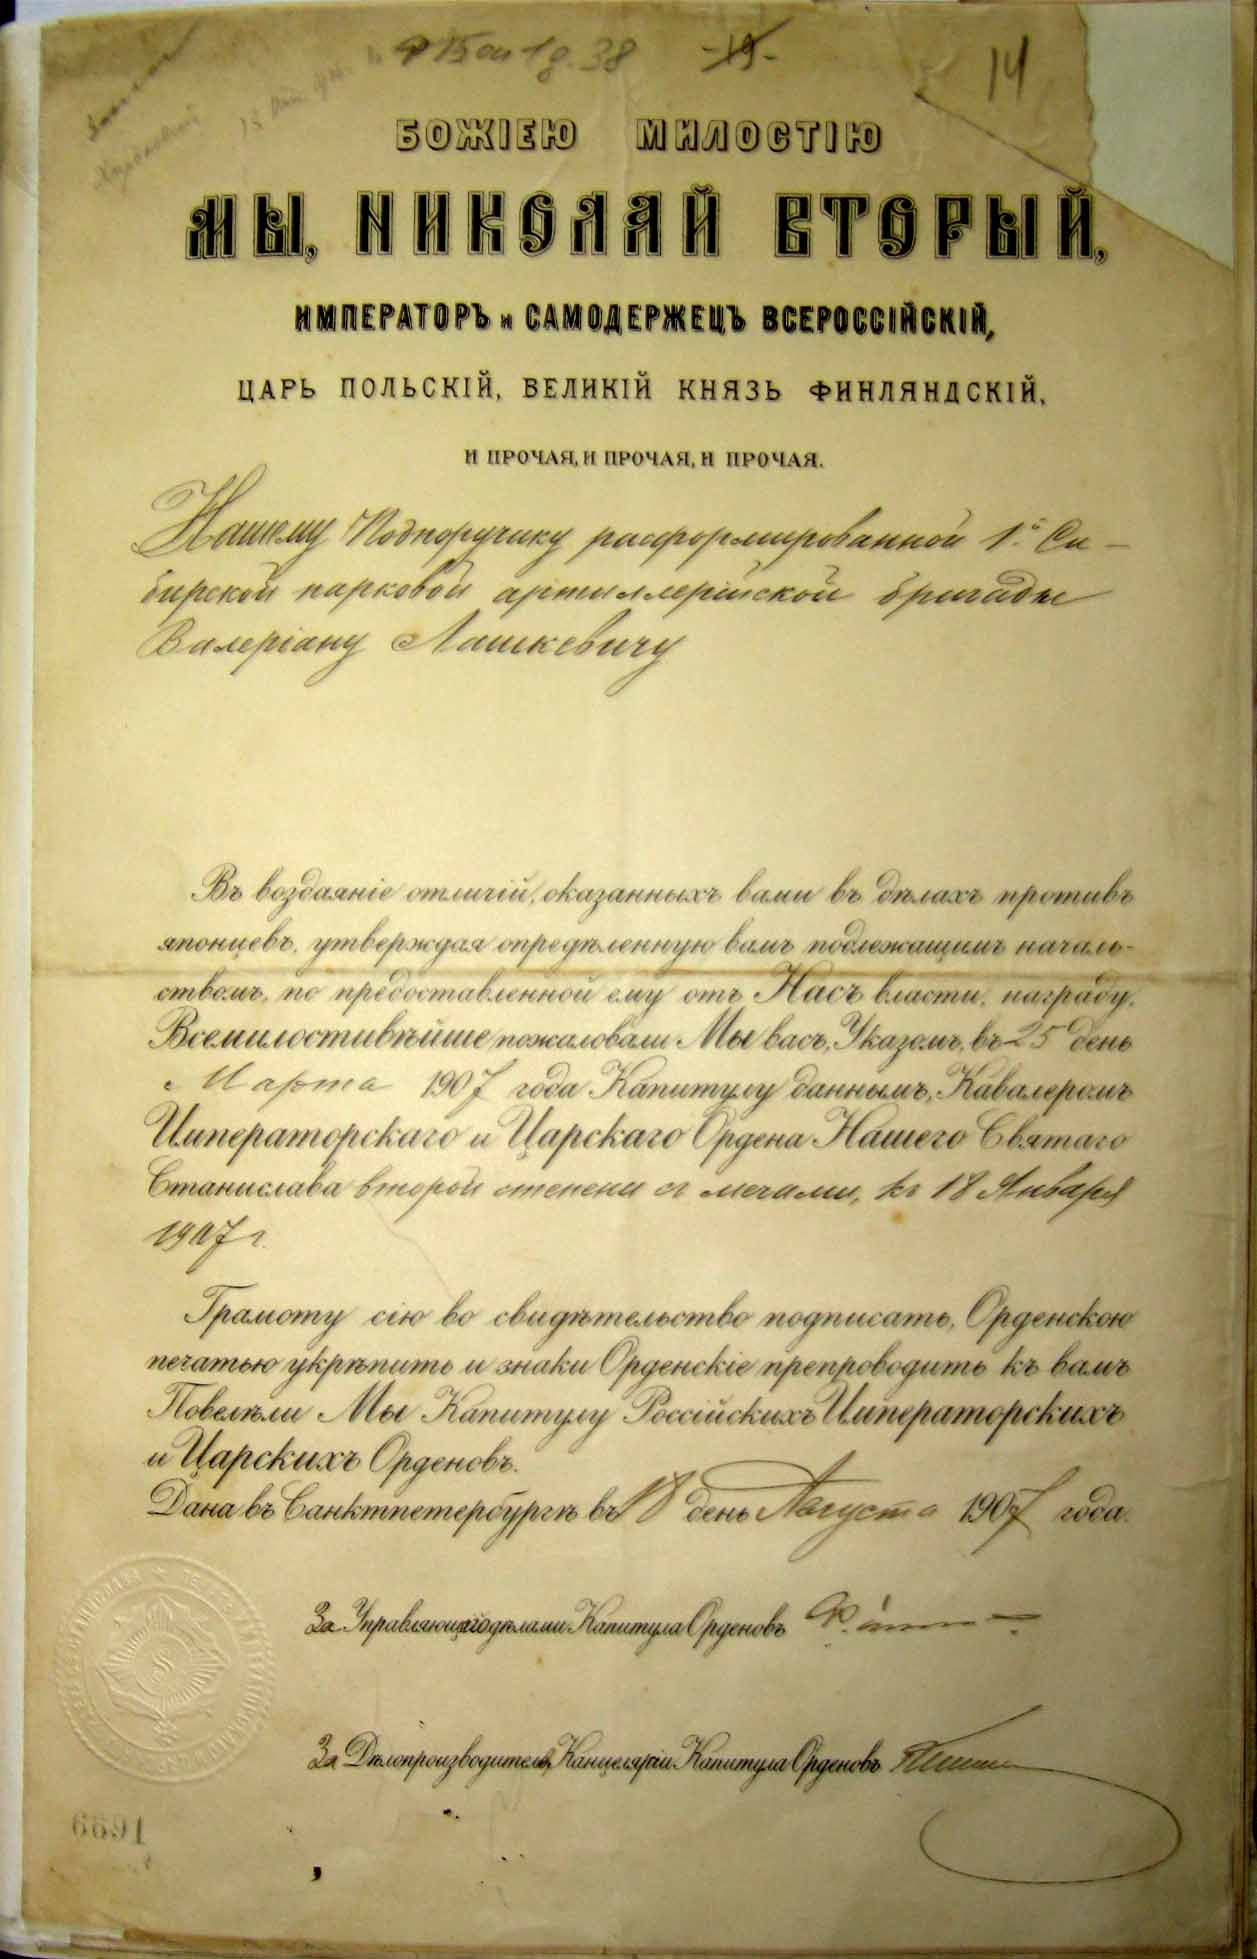 15 окт. 38 -19- 14
БОЖІЕЮ МИЛОСТІЮ
МЫ, НИКОЛАЙ ВТОРЫЙ,
ИМПЕРАТОРЪ и САМОДЕРЖЕЦЪ ВСЕРОССІЙСКІЙ,
ЦАРЬ ПОЛЬСКІЙ, ВЕЛИКІЙ КНЯЗЬ ФИНЛЯНДСКІЙ,
И ПРОЧАЯ, И ПРОЧАЯ, И ПРОЧАЯ.
Нашему Подпоручику расформированной 1й Си-
бирской парковой артиллерійской бригады
Валеріану Лашкевичу
Въ воздаяніе отличій, оказанныхъ вами въ дѣлахъ противъ
японцевъ, утверждая опредѣленную вамъ подлежащимъ началь-
ствомъ, по предоставленной ему отъ Насъ власти, награду,
Всемилостивѣйше пожаловали Мы васъ, Указомъ, въ 25 день
Марта 1907 года Капитулу даннымъ, Кавалеромъ
Императорскаго и Царскаго Ордена Нашего Святаго
Станислава второй степени съ мечами, къ 18 Января
1907 г.
Грамоту сію во свидѣтельство подписать, Орденскою
печатью укрѣпить и знаки Орденскіе препроводить къ вамъ
Повелѣли Мы Капитулу Россійскихъ Императорскихъ
и Царскихъ Орденовъ.
Дана въ Санктпетербургѣ въ 18 день Августа 1907 года.
За Управляющаго дѣлами Капитула Орденовъ
За Дѣлопроизводителя Канцеляріи Капитула Орденовъ
1669